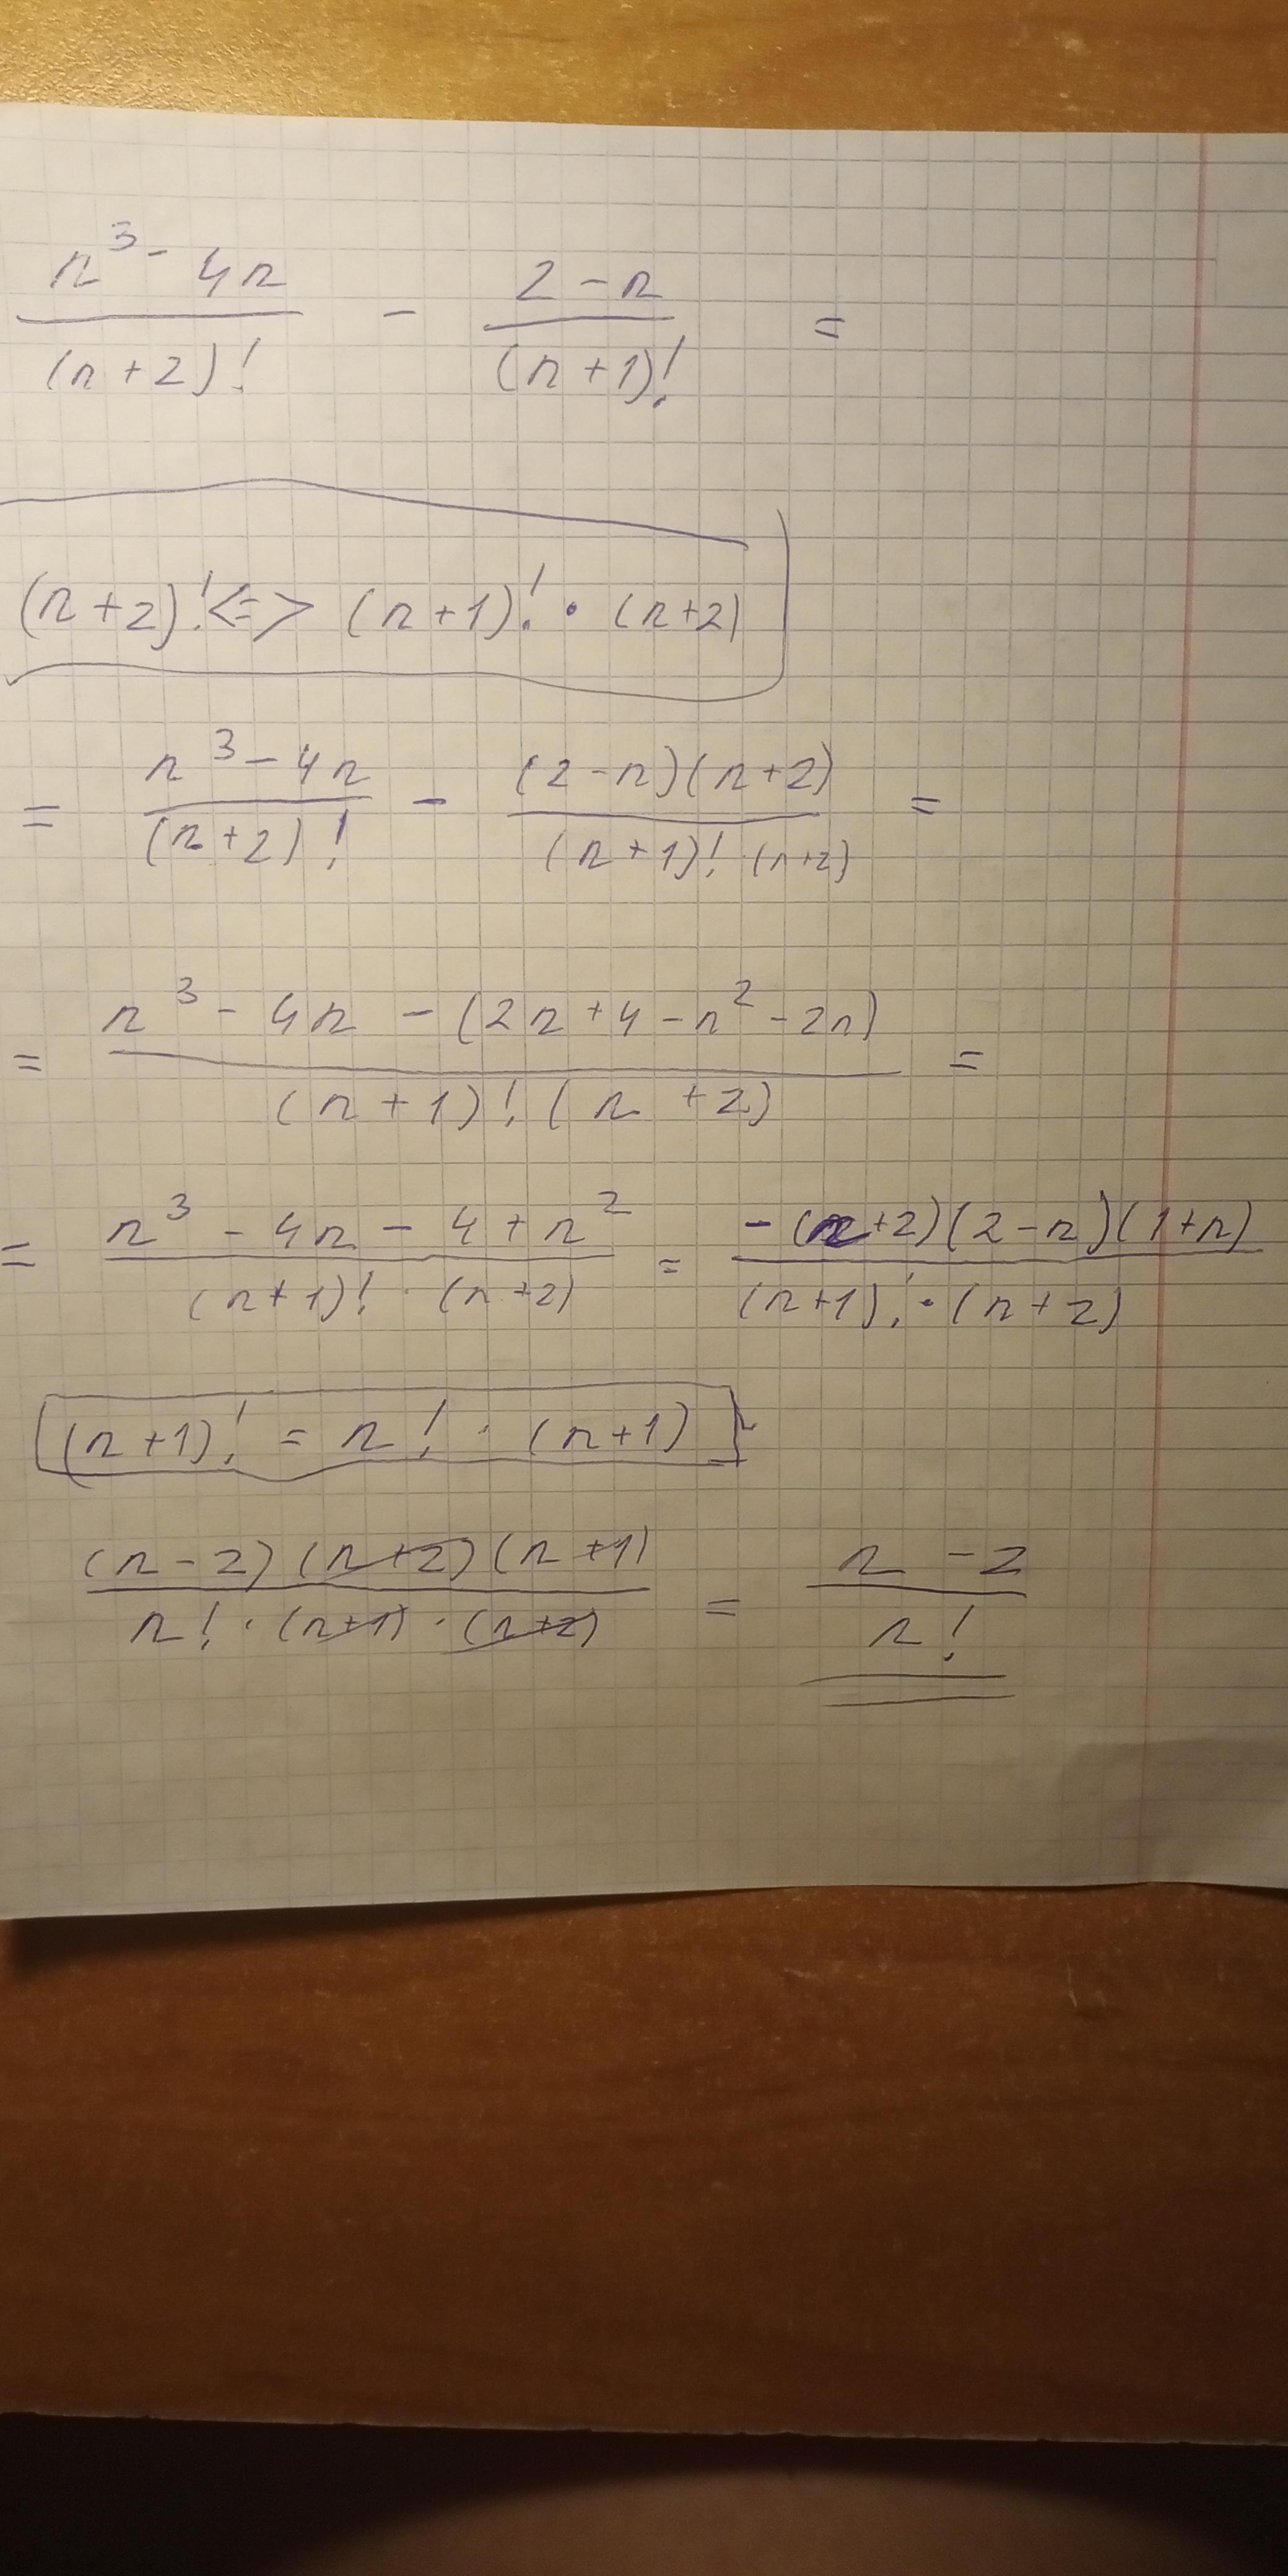 (n³ - 4n)/(n+2)! - (2-n)/(n+1)! =
(n+2)! <=> (n+1)! · (n+2)
= (n³ - 4n)/(n+2)! - (2-n)(n+2)/(n+1)! · (n+2) =
= (n³ - 4n - (2n+4-n²-2n))/(n+1)! (n+2) =
= (n³ - 4n - 4 + n²)/(n+1)! · (n+2) = -(n+2)(2-n)(1+n)/(n+1)! · (n+2)
(n+1)! = n! · (n+1)
(n-2)(n+2)(n+1)/n! · (n+1) · (n+2) = (n-2)/n!